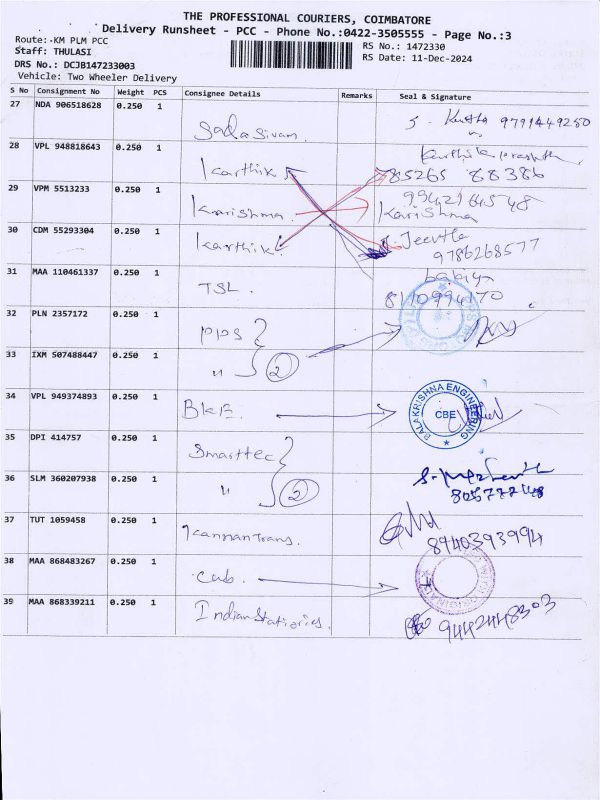 THE PROFESSIONAL COURIERS, COIMBATORE
Delivery Runsheet - PCC - Phone No.:0422-3505555 - Page No.:3
Route:-KM PLM PCC
Staff: THULASI
DRS No.: DCJB147233003
Vehicle: Two Wheeler Delivery
RS No.: 1472330
RS Date: 11-Dec-2024
S No Consignment No Weight PCS Consignee Details Remarks Seal & Signature
27 NDA 906518628 0.250 1 Sadasivam. 9791449250
28 VPL 948818643 0.250 1 Karthik. 85265 88386
29 VPM 5513233 0.250 1 Karishma 9942164548 Karishma
30 CDM 55293304 0.250 1 Karthik. Jeevtha 9786268577
31 MAA 110461337 0.250 1 TSL.
32 PLN 2357172 0.250 1 PPS
33 IXM 507488447 0.250 1 " 2
34 VPL 949374893 0.250 1 BKE. BALAKRISHNA ENGINEERING CBE
35 DPI 414757 0.250 1 Smarttec
36 SLM 360207938 0.250 1 " 2
37 TUT 1059458 0.250 1 Kannan Trans. 8940393994
38 MAA 868483267 0.250 1 Cub.
39 MAA 868339211 0.250 1 Indian Stationries. 9442448303